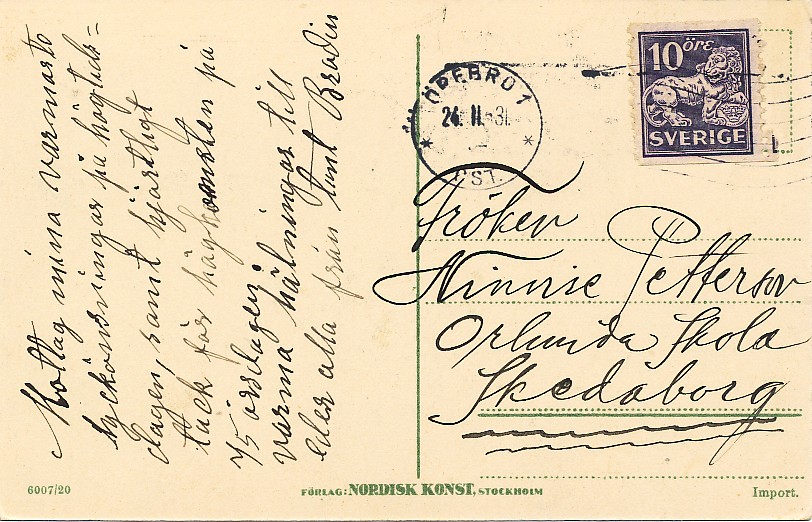 Mottag mina varmaste
lyckönskningar på högtids-
dagen, samt hjärtligt
tack för hågkomsten på
75 årsdagen.
Varma hälsningar till
eder alla från tant Bradin
ÖREBRO 1
24.11.31
ÖST.
10 öre
SVERIGE
Fröken
Ninnie Petterson
Orlunda Skola
Skedaborg
6007/20
FÖRLAG: NORDISK KONST, STOCKHOLM
Import.